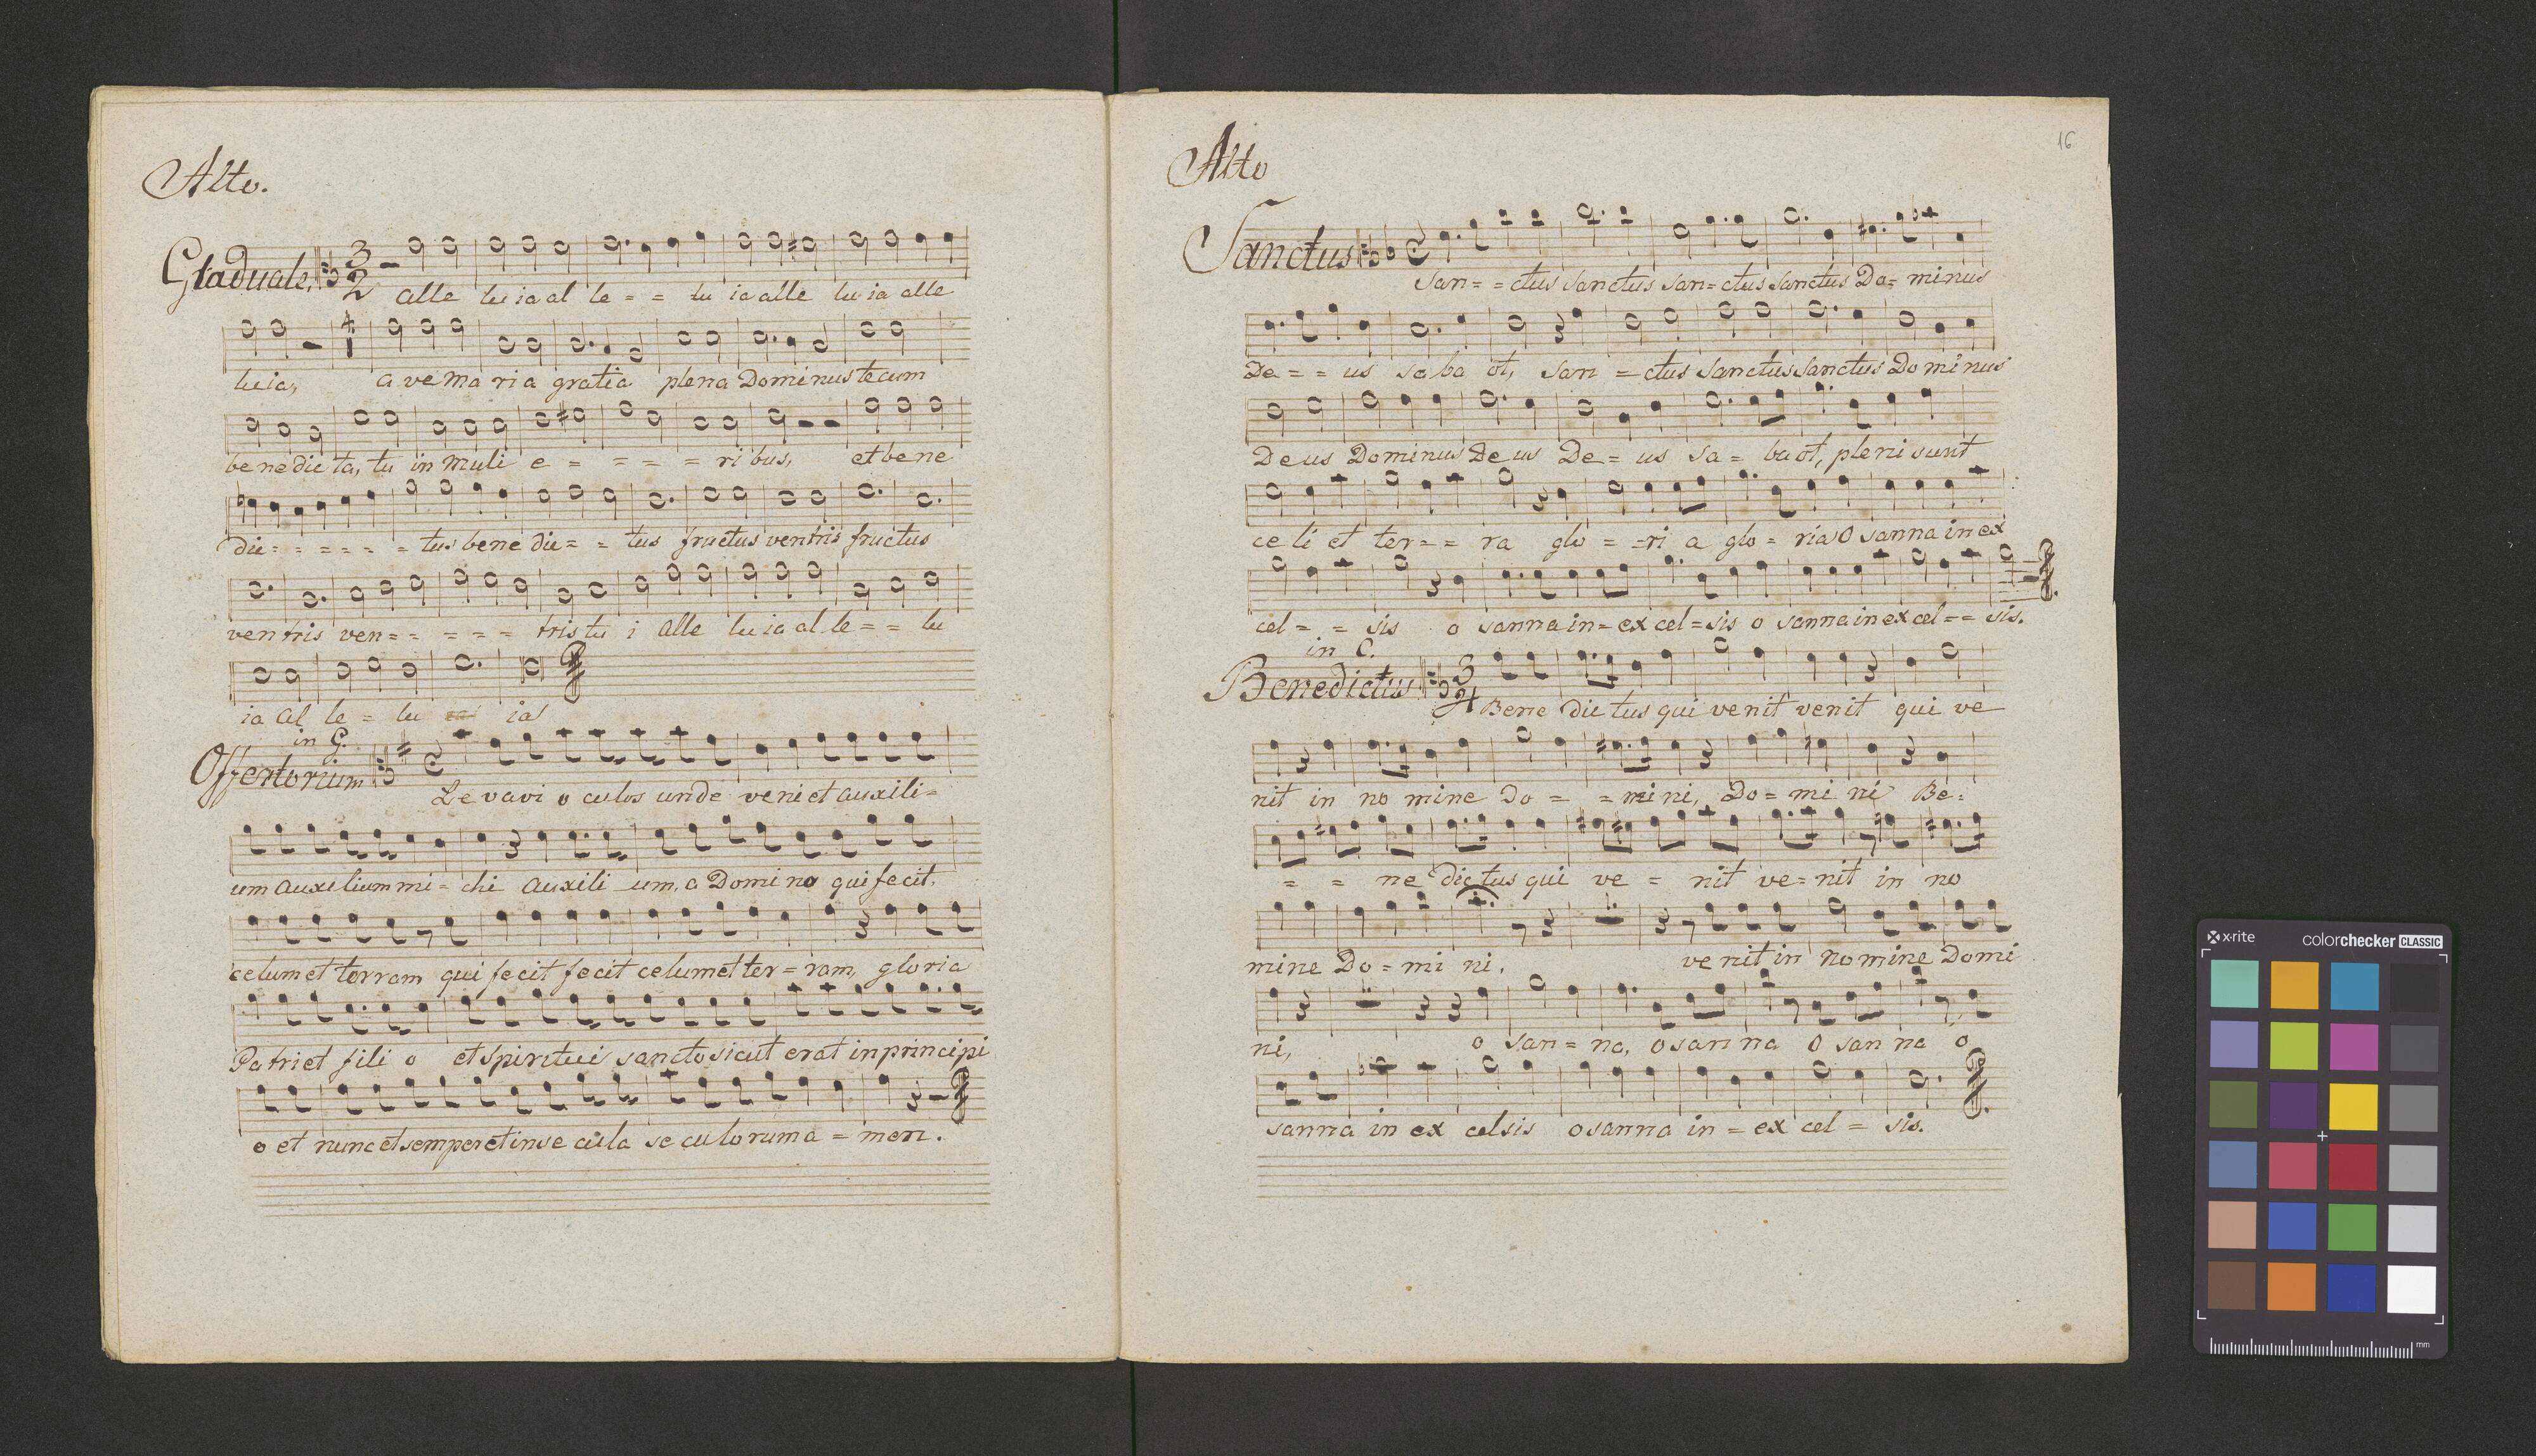 Alto.
Graduale, 3 2
alle lu ia al le = = lu ia alle lu ia alle
4
lu ia, a ve Ma ri a gratia plena Dominus tecum
be ne die ta, tu in muli e = = = = ri bus, et be ne
die = = = = = = tus bene die = = tus fructus ventris fructus
ven tris ven = = = = = tris tu i alle lu ia al le = = lu
ia al le = lu ia
in G.
Offertorium C
Le vavi o culos unde veniet auxili =
um auxilium mi = chi auxili um, a Domino qui fecit.
celum et terram qui fecit fecit celum et ter = ram, gloria
Patri et fili o et spiritui sancto sicut erat in principi
o et nunc et semper et in se cula se culorum a = men.
Alto
16
Sanctus C
San = = ctus sanctus san = ctus sanctus Do = minus
De = = us sa ba ot, san = ctus sanctus sanctus Do minus
Deus Dominus De us De = us sa = ba ot, pleni sunt
ce li et ter = = ra glo = = ri a glo = ria O sanna in ex
cel = = sis o sanna in = ex cel = sis o sanna in ex cel = = sis.
in C.
Benedictus 3 4
Bene die tus qui venit venit qui ve
nit in no mine Do = = mi ni, Do = mi ni Be =
= = ne dictus qui ve = nit ve = nit in no
mine Do = mi ni, ve nit in nomine Domi
ni, o san = na, o san na o san na o
sanna in ex celsis o sanna in = ex cel = sis.
x-rite
colorchecker CLASSIC
mm